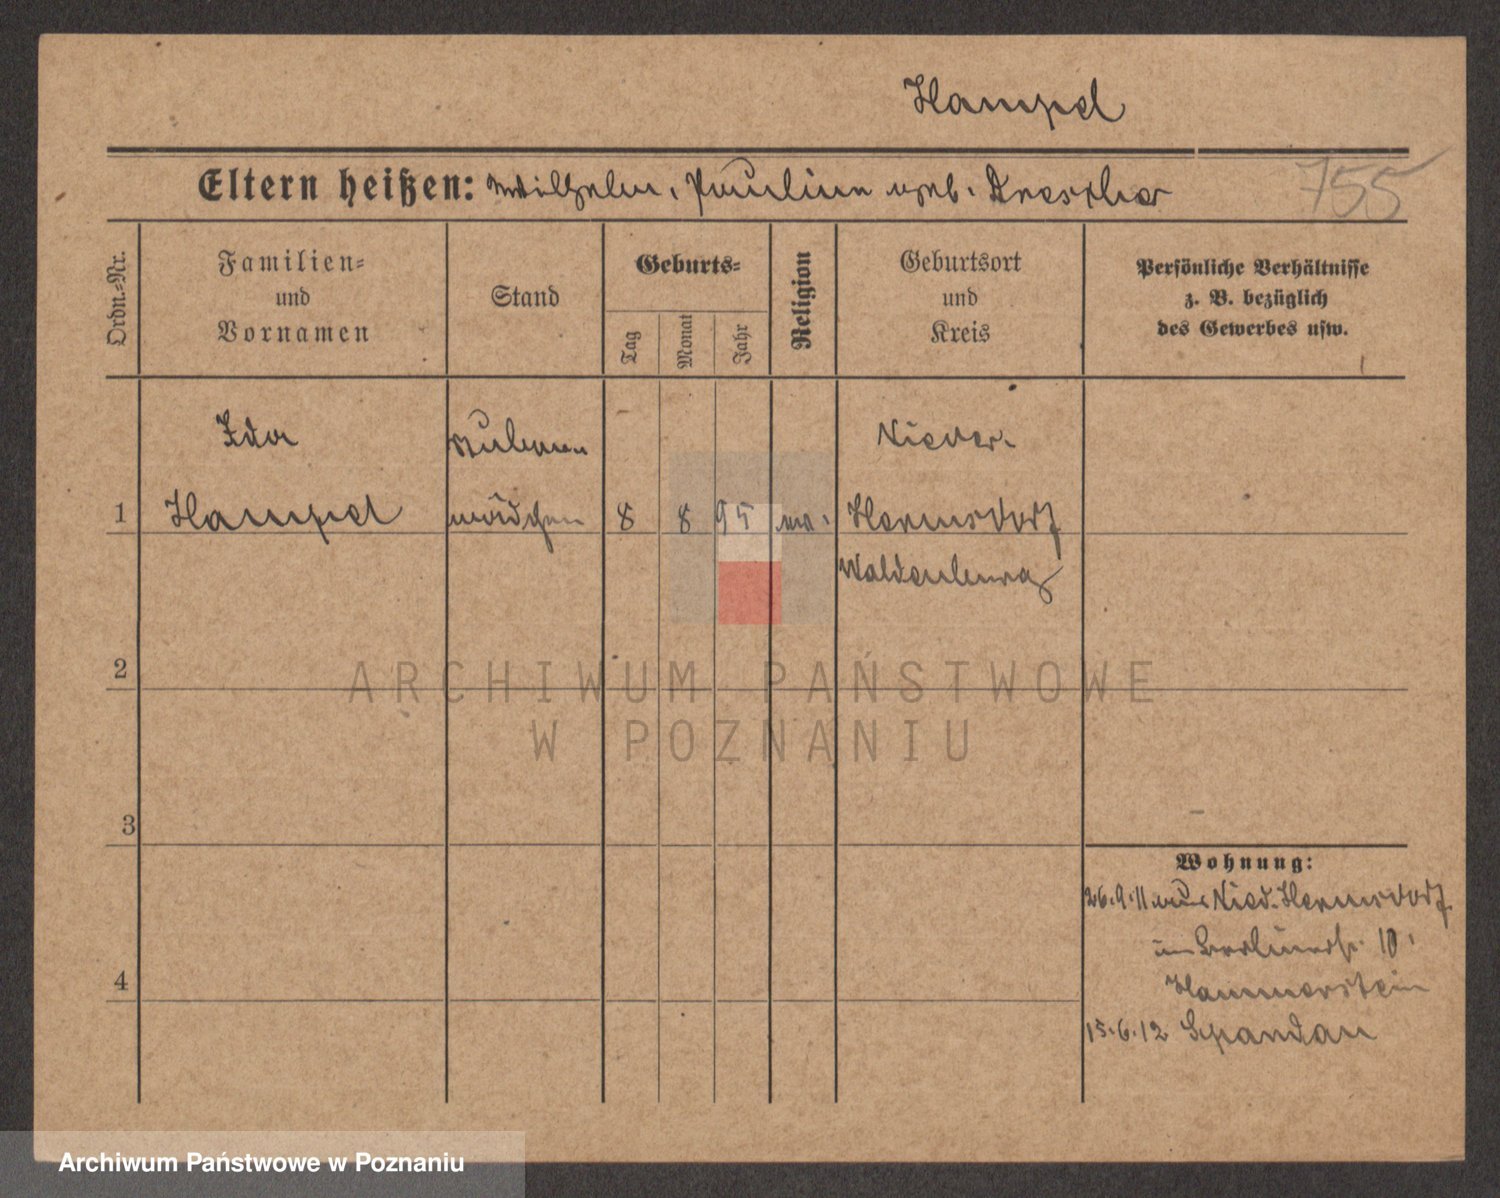 Hampel
Eltern heißen: Wilhelm, Pauline geb.
755
Ordn.=Nr.
Familien=
und
Vornamen
Stand
Geburts=
Tag
Monat
Jahr
Religion
Geburtsort
und
Kreis
Persönliche Verhältnisse
z. B. bezüglich
des Gewerbes usw.
Ida
Stuben
Nieder-
1
Hampel
mädchen
8
8
95
ev.
Hermsdorf
Waldenburg
2
ARCHIWUM PAŃSTWOWE
W POZNANIU
3
Wohnung:
26.9.11 aus Nied. Hermsdorf
in Berlinerstr. 10.
4
Hammerstein
15.6.12 Spandau
Archiwum Państwowe w Poznaniu